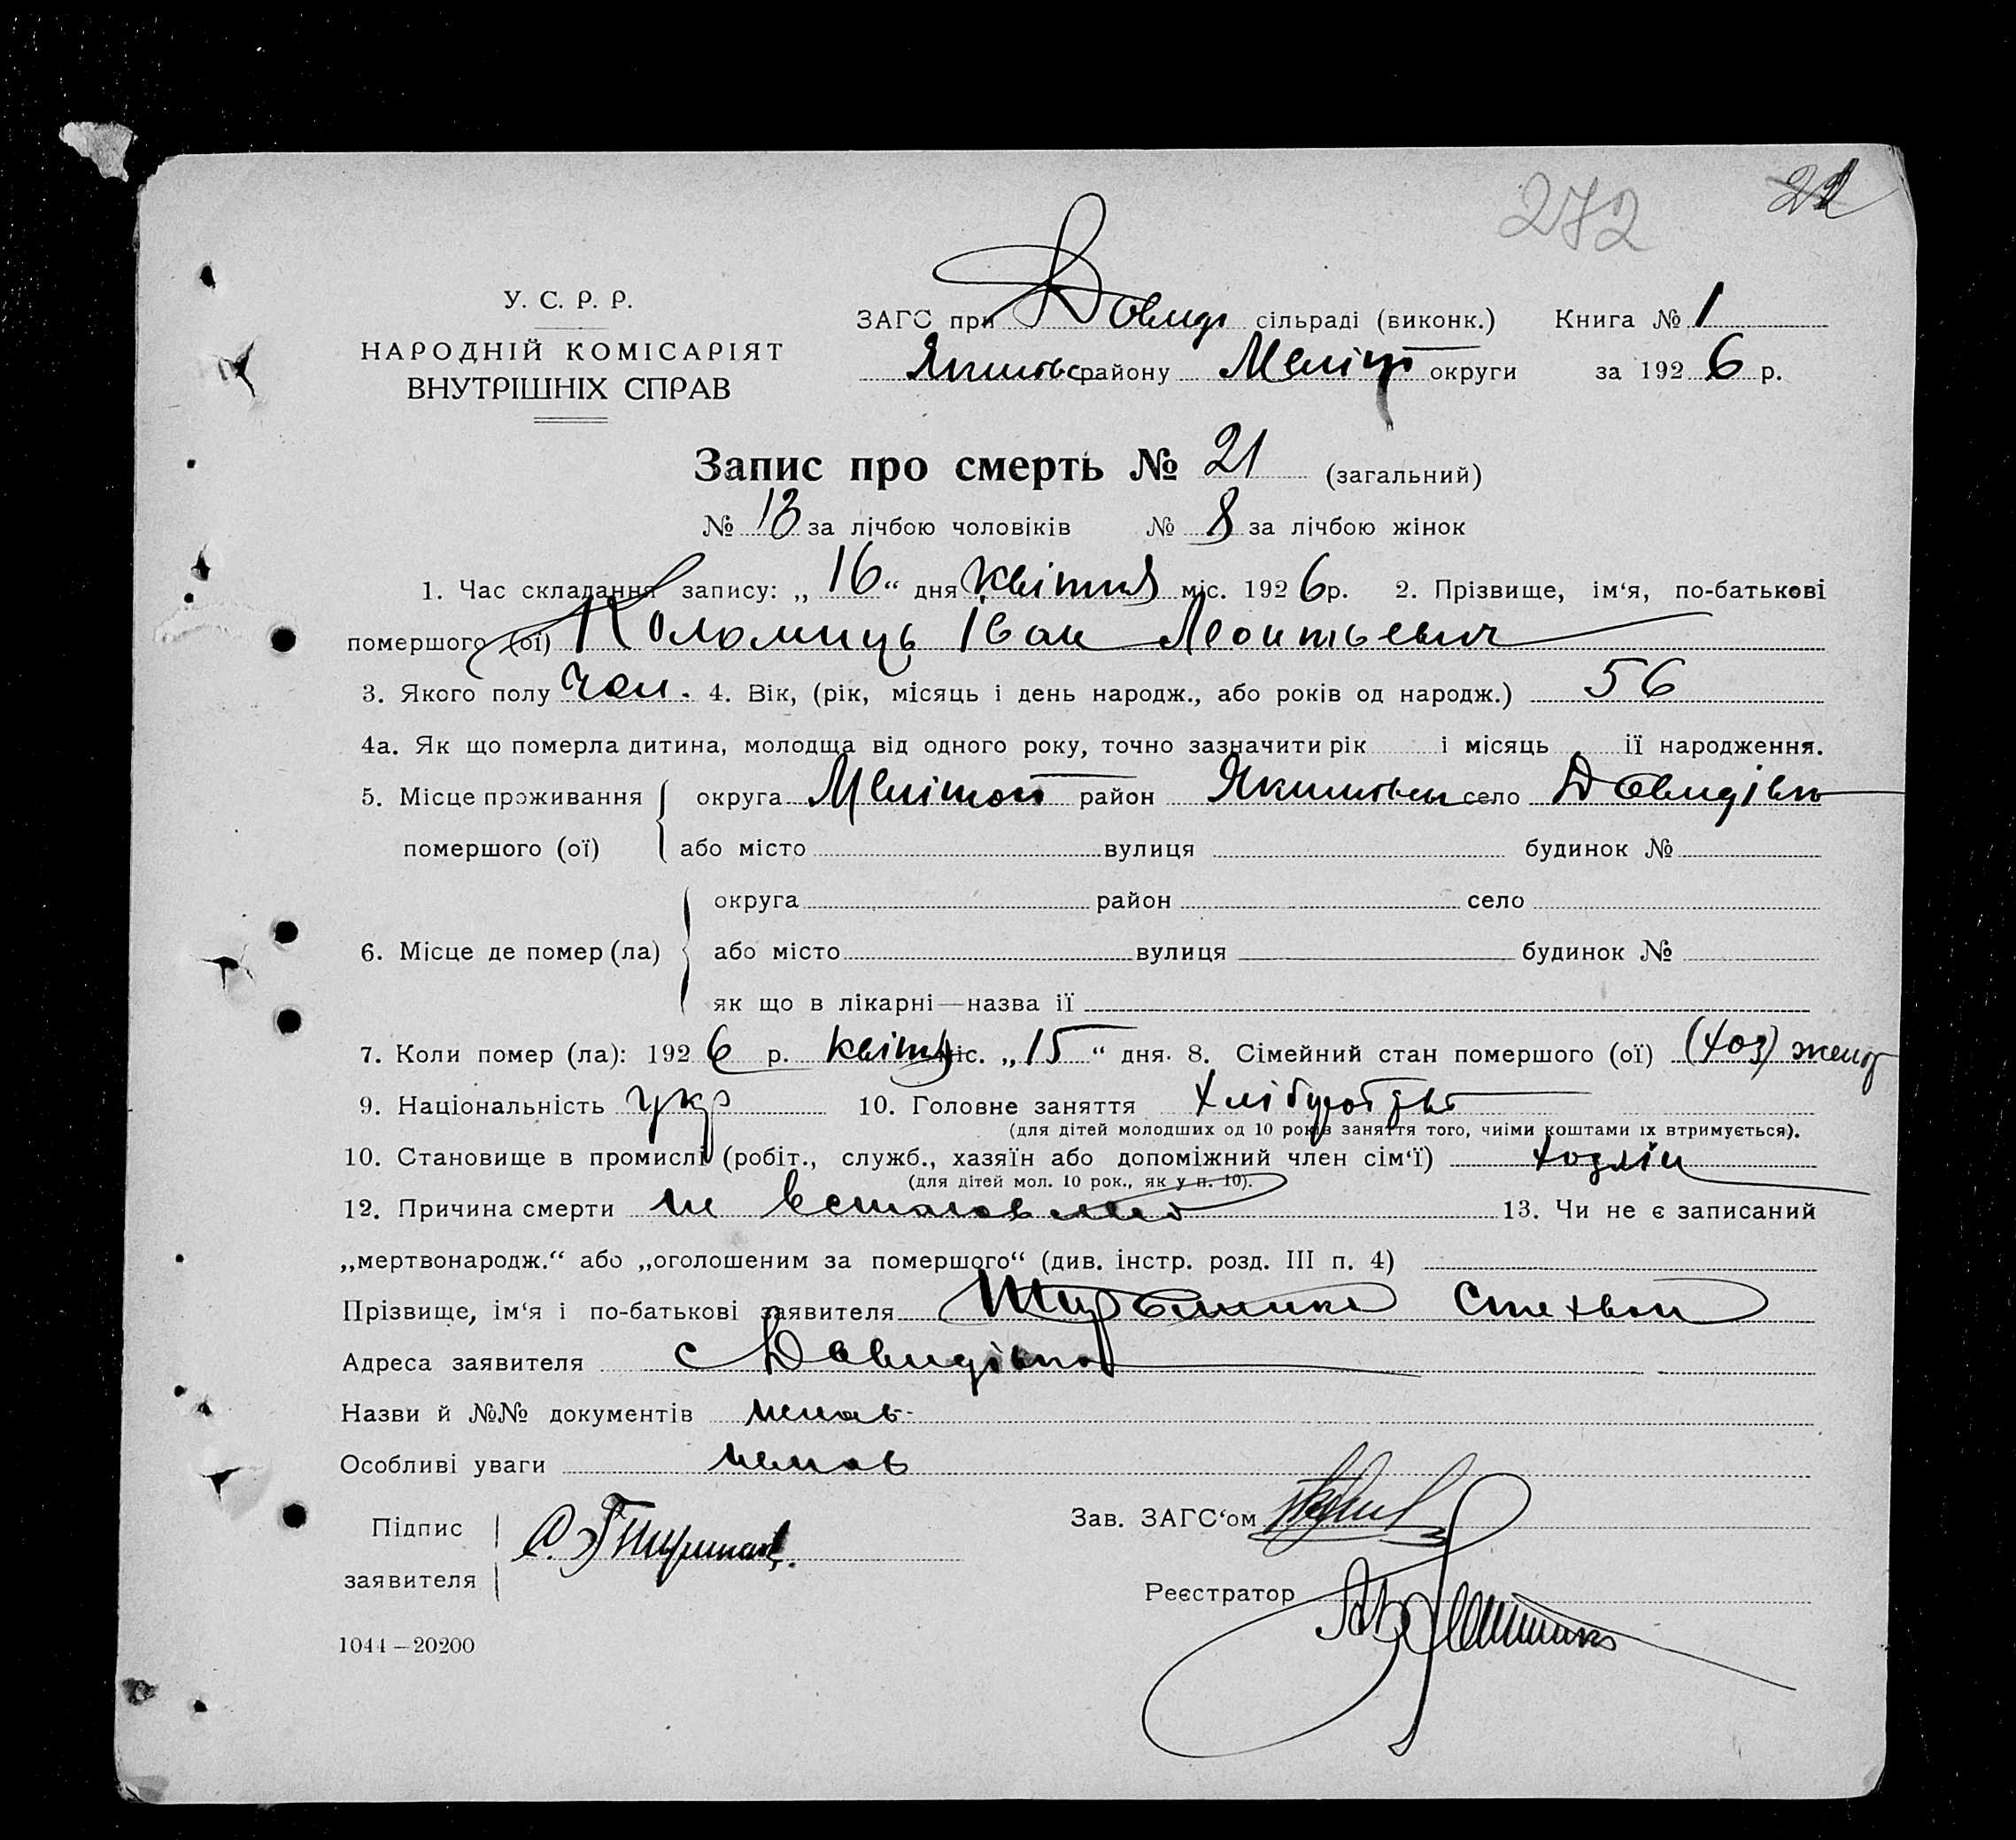 272 22
У. С. Р. Р.
НАРОДНІЙ КОМІСАРІЯТ
ВНУТРІШНІХ СПРАВ
ЗАГС при Довид сільраді (виконк.) Книга № 1
Якимовс району Меліт округи за 1926 р.
Запис про смерть № 21 (загальний)
№ 13 за лічбою чоловіків № 8 за лічбою жінок
1. Час складання запису: „ 16 “ дня квітня міс. 1926 р. 2. Прізвище, ім‘я, по-батькові
помершого (ої) Коломиць Іван Леонтьевич
3. Якого полу чол. 4. Вік, (рік, місяць і день народж., або років од народж.) 56
4а. Як що померла дитина, молодша від одного року, точно зазначити рік і місяць її народження.
5. Місце проживання помершого (ої) округа Мелітоп район Якимовськ село Давидівка
або місто вулиця будинок №
6. Місце де помер (ла) округа район село
або місто вулиця будинок №
як що в лікарні—назва її
7. Коли помер (ла): 1926 р. квітня міс. „ 15 “ дня. 8. Сімейний стан помершого (ої) жена
9. Національність укр 10. Головне заняття хліборобство
(для дітей молодших од 10 років заняття того, чиїми коштами їх втримується).
10. Становище в промислі (робіт., служб., хазяїн або допоміжний член сім‘ї)
(для дітей мол. 10 рок., як у п. 10).
12. Причина смерти не встановлено 13. Чи не є записаний
„мертвонародж.“ або „оголошеним за помершого“ (див. інстр. розд. III п. 4)
Прізвище, ім‘я і по-батькові заявителя Степан
Адреса заявителя с Давидівка
Назви й №№ документів немає
Особливі уваги немає
Підпис заявителя
Зав. ЗАГС‘ом
Реєстратор
1044—20200